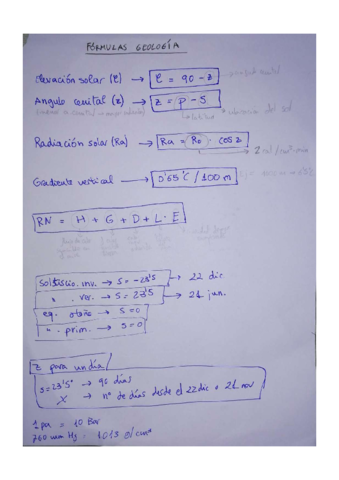 FÓRMULAS GEOLOGÍA
Elevación solar (e) → e = 90 - z
Ángulo cenital (z) → z = p - s
latitud
Radiación solar (Ra) → Ra = Ro · cos z
Gradiente vertical → 0'65°C / 100 m
RN = H + G + D + L · E
Solsticio. inv. → S = -23'5 → 22 dic
" . ver. → S = 23'5 → 21 jun.
eq. otoño → S = 0
" . prim. → S = 0
z para un día
S = 23'5° → 90 días
X → nº de días desde el 22 dic o 21 nov
= 10 Bar
760 mm Hg = 1013